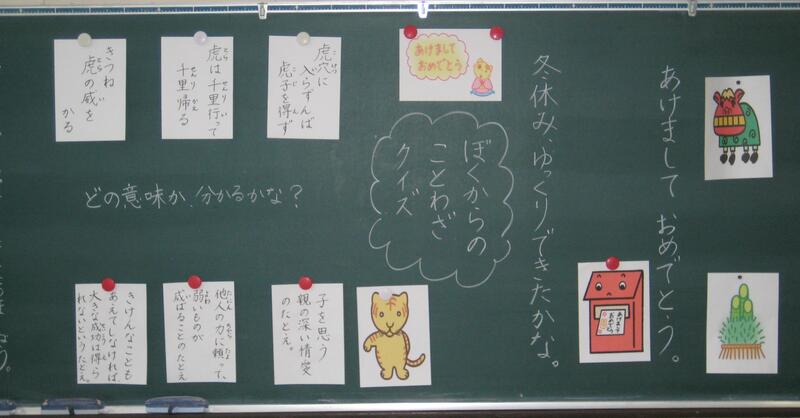 あけまして おめでとう。
冬休み、ゆっくりできたかな。
あけまして
おめでとう
あけまして
おめでとう
ぼくからの
ことわざ
クイズ
虎穴に
入らずんば
虎子を得ず
虎は千里行って
千里帰る
きつね
虎の威を
かる
どの意味か、分かるかな？
子を思う
親の深い情愛
のたとえ。
他人の力に頼って、
弱いものが
威ばることのたとえ
きけんなことも
あえてしなければ、
大きな成功は得ら
れないというたとえ。